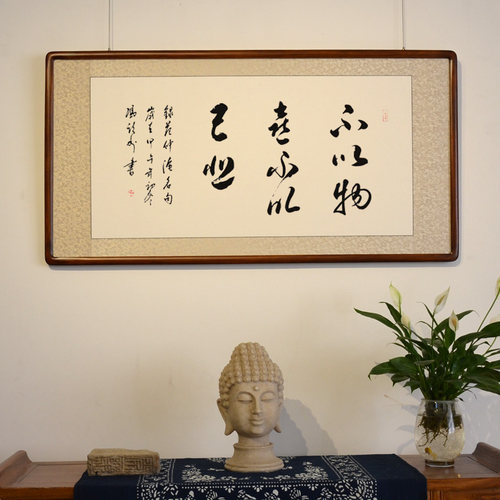 不以物
喜不以
己悲
錄范仲淹名句
歲在甲午年初冬
書